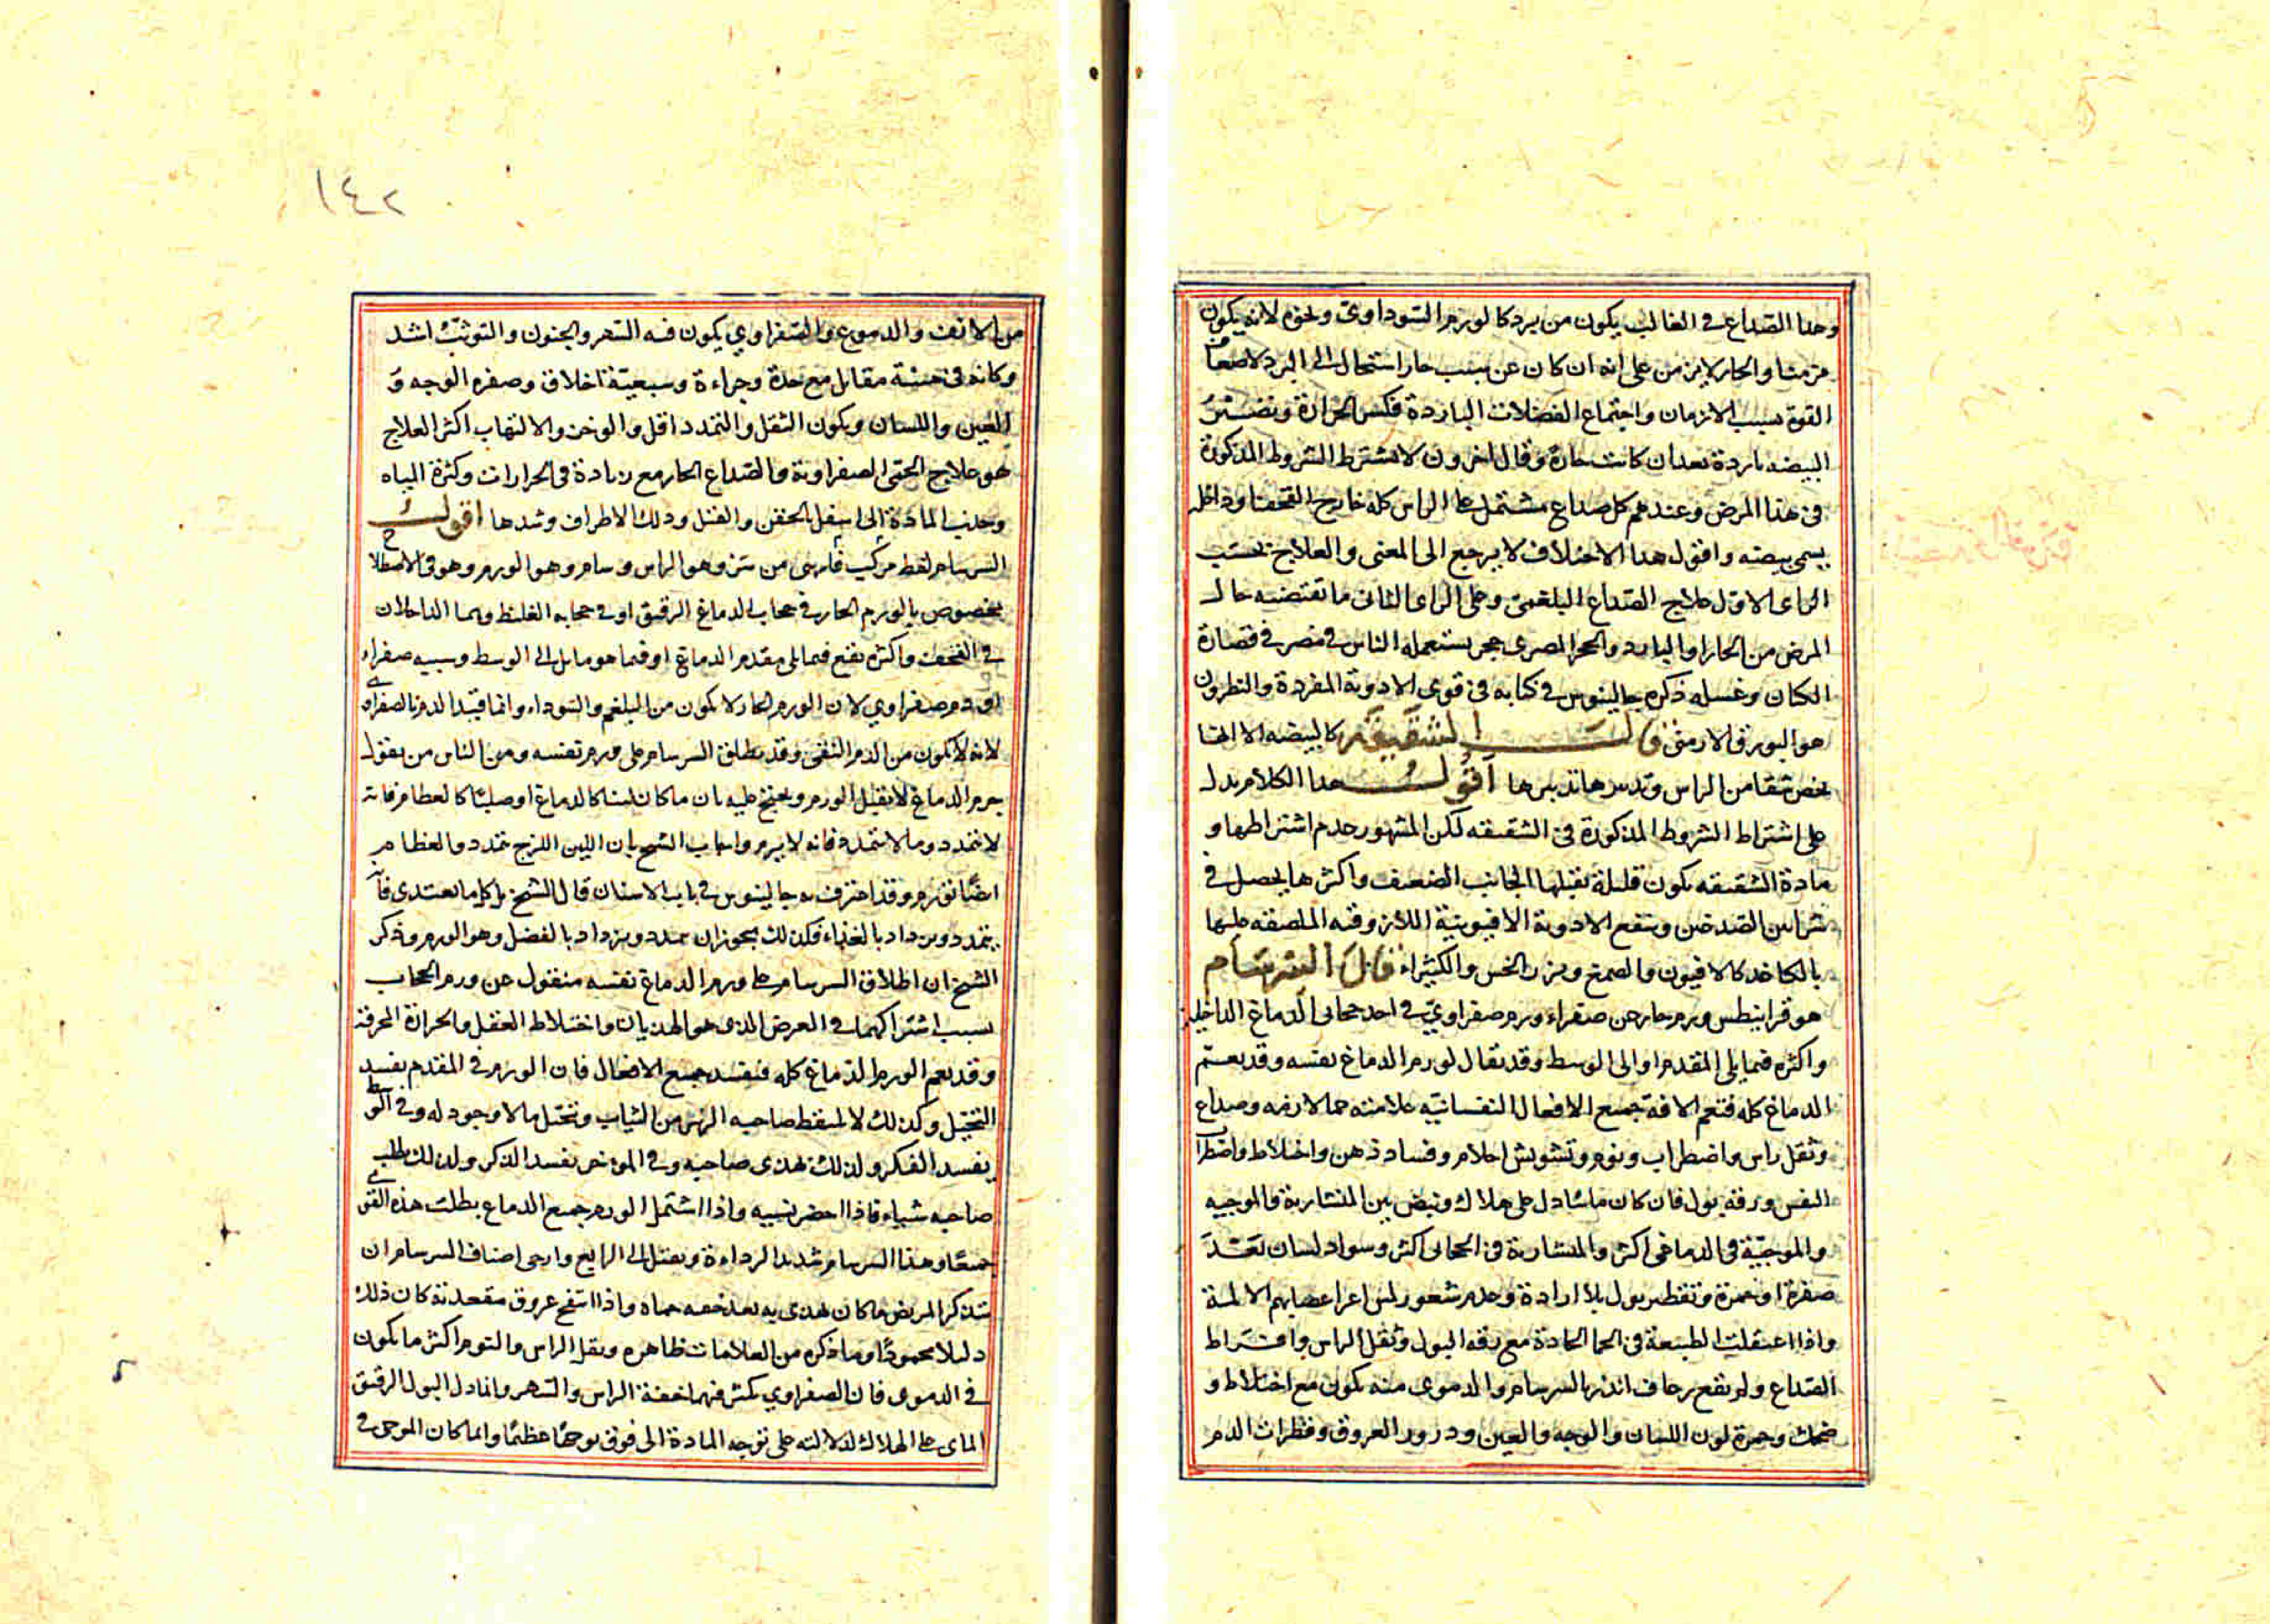 وهذا الصداع في الغالب يكون من برد كالورم السوداوي ونحوه لانه يكون
مزمنا والحار لا يزمن على انه ان كان عن سبب حار استحال الى البرد لاضعاف
القوة بسبب الازمان واجتماع الفضلات الباردة فتكسر الحرارة وتصير
البيضه باردة بعد ان كانت حارة وقال اخرون لا تشترط الشروط المذكورة
في هذا المرض وعندهم كل صداع مشتمل على الراس كله خارج القحف او داخله
يسمى بيضه واقول هذا الاختلاف لا يرجع الى المعنى والعلاج بحسب
الراى الاول علاج الصداع البلغمى وعلى الراى الثانى ما تقتضيه حال
المرض من الحار او البارد والحجر المصرى حجر يستعمله الناس في مصر في قصارة
الكتان وغسله ذكره جالينوس في كتابه في قوى الادوية المفردة والنطرون
هو البورق الارمنى قال الشقيقة كالبيضه الا انها
تخص شقا من الراس وتدبيرها تدبيرها اقول هذا الكلام يدل
على اشتراط الشروط المذكورة في الشقيقه لكن المشهور عدم اشتراطها و
مادة الشقيقه تكون قليلة يقبلها الجانب الضعيف واكثرها يحصل في
شرايين الصدغين وينفع الادوية الافيونية اللازوقيه الملصقه عليها
بالكاغد كالافيون والصمغ وبزر الخس والكثيراء قال السرسام
هو قرانيطس ورم حار عن صفراء ودم صفراوي في احد حجابى الدماغ الداخلين
واكثره فيما يلى المقدم او الى الوسط وقد يقال لورم الدماغ نفسه وقد يعم
الدماغ كله فتعم الافة جميع الافعال النفسانيه علامته حما لازمه وصداع
وثقل راس واضطراب ونوم وتشويش احلام وفساد ذهن واختلاط واضطراب
النفس ورقه بول فان كان مائيا دل على هلاك ونبض بين المنشارية والموجيه
والموجية في الدماغى اكثر والمنشارية في الحجابى اكثر وسواد لسان بعد
صفرة او حمرة وتقطير بول بلا ارادة وعدم شعور لمس اعضايهم الالمة
واذا اعتقلت الطبيعة في الحما الحادة مع رقه البول وثقل الراس وافراط
الصداع ولم يقع رعاف انذر بالسرسام والدموى منه يكون مع اختلاط و
ضحك وحمرة لون اللسان والوجه والعين ودرور العروق وقطرات الدم
١٤٢
من الانف والدموع والصفراوي يكون فيه السهر والجنون والتوثب اشد
وكانه في هيئة مقاتل مع حدة وجراءة وسبعية اخلاق وصفره الوجه و
العين واللسان ويكون الثقل والتمدد اقل والوخز والالتهاب اكثر العلاج
هو علاج الحمى الصفراوية والصداع الحار مع زيادة في الحرارات وكثرة المياه
وجذب المادة الى اسفل بالحقن والفتل ودلك الاطراف وشدها اقول
السرسام لفظ مركب فارسى من سر وهو الراس وسام وهو الورم وهو في الاصطلاح
مخصوص بالورم الحار في حجاب الدماغ الرقيق او في حجابه الغليظ وهما الداخلان
في القحف واكثره يقع فيما يلى مقدم الدماغ او فيما هو مايل الى الوسط وسببه صفراء
او دم صفراوي لان الورم الحار لا يكون من البلغم والسوداء وانما قيد الدم بالصفراوي
لانه لا يكون من الدم النقى وقد يطلق السرسام على ورم نفسه ومن الناس من يقول
جرم الدماغ لا يقبل الورم ويحتج عليه بان ما كان لينا كالدماغ او صلبا كالعظام فانه
لا يتمدد وما لا يتمدد فانه لا يرم واجاب الشيخ بان اللين اللزج يتمدد والعظام
ايضًا تورم وقد اعترف به جالينوس في باب الاسنان قال الشيخ بل كل ما يغتذى فانه
يتمدد ويزداد بالغذاء فكذلك يجوز ان يتمدد ويزداد بالفضل وهو الورم وذكر
الشيخ ان اطلاق السرسام على ورم الدماغ نفسه منقول عن ورم الحجاب
بسبب اشتراكهما في العرض الذى هو الهذيان واختلاط العقل والحرارة المحرقة
وقد يعم الورم الدماغ كله فتفسد جميع الافعال فان الورم في المقدم يفسد
التخيل وكذلك لا يلتقط صاحبه الزئبر من الثياب وتخيل ما لا وجود له وفي الوسط
يفسد الفكر ولذلك يهذى صاحبه وفي المؤخر يفسد الذكر ولذلك يطلب
صاحبه شياء فاذا احضر نسيه واذا اشتمل الورم جميع الدماغ بطلت هذه القوى
جميعًا وهذا السرسام شديد الرداءة ويقتل الى الرابع وارجى اصناف السرسام ان
يتذكر المريض ما كان يهذى به بعد خفه حماه واذا انتفخ عروق مقعدته كان ذلك
دليلا محمودًا وما ذكره من العلامات ظاهره وثقل الراس والنوم اكثر ما يكون
في الدموى فان الصفراوي يكثر فيهما خفة الراس والسهر وانما دل البول الرقيق
المائى على الهلاك لدلالته على توجه المادة الى فوق توجهًا عظيمًا وانما كان الموجى في